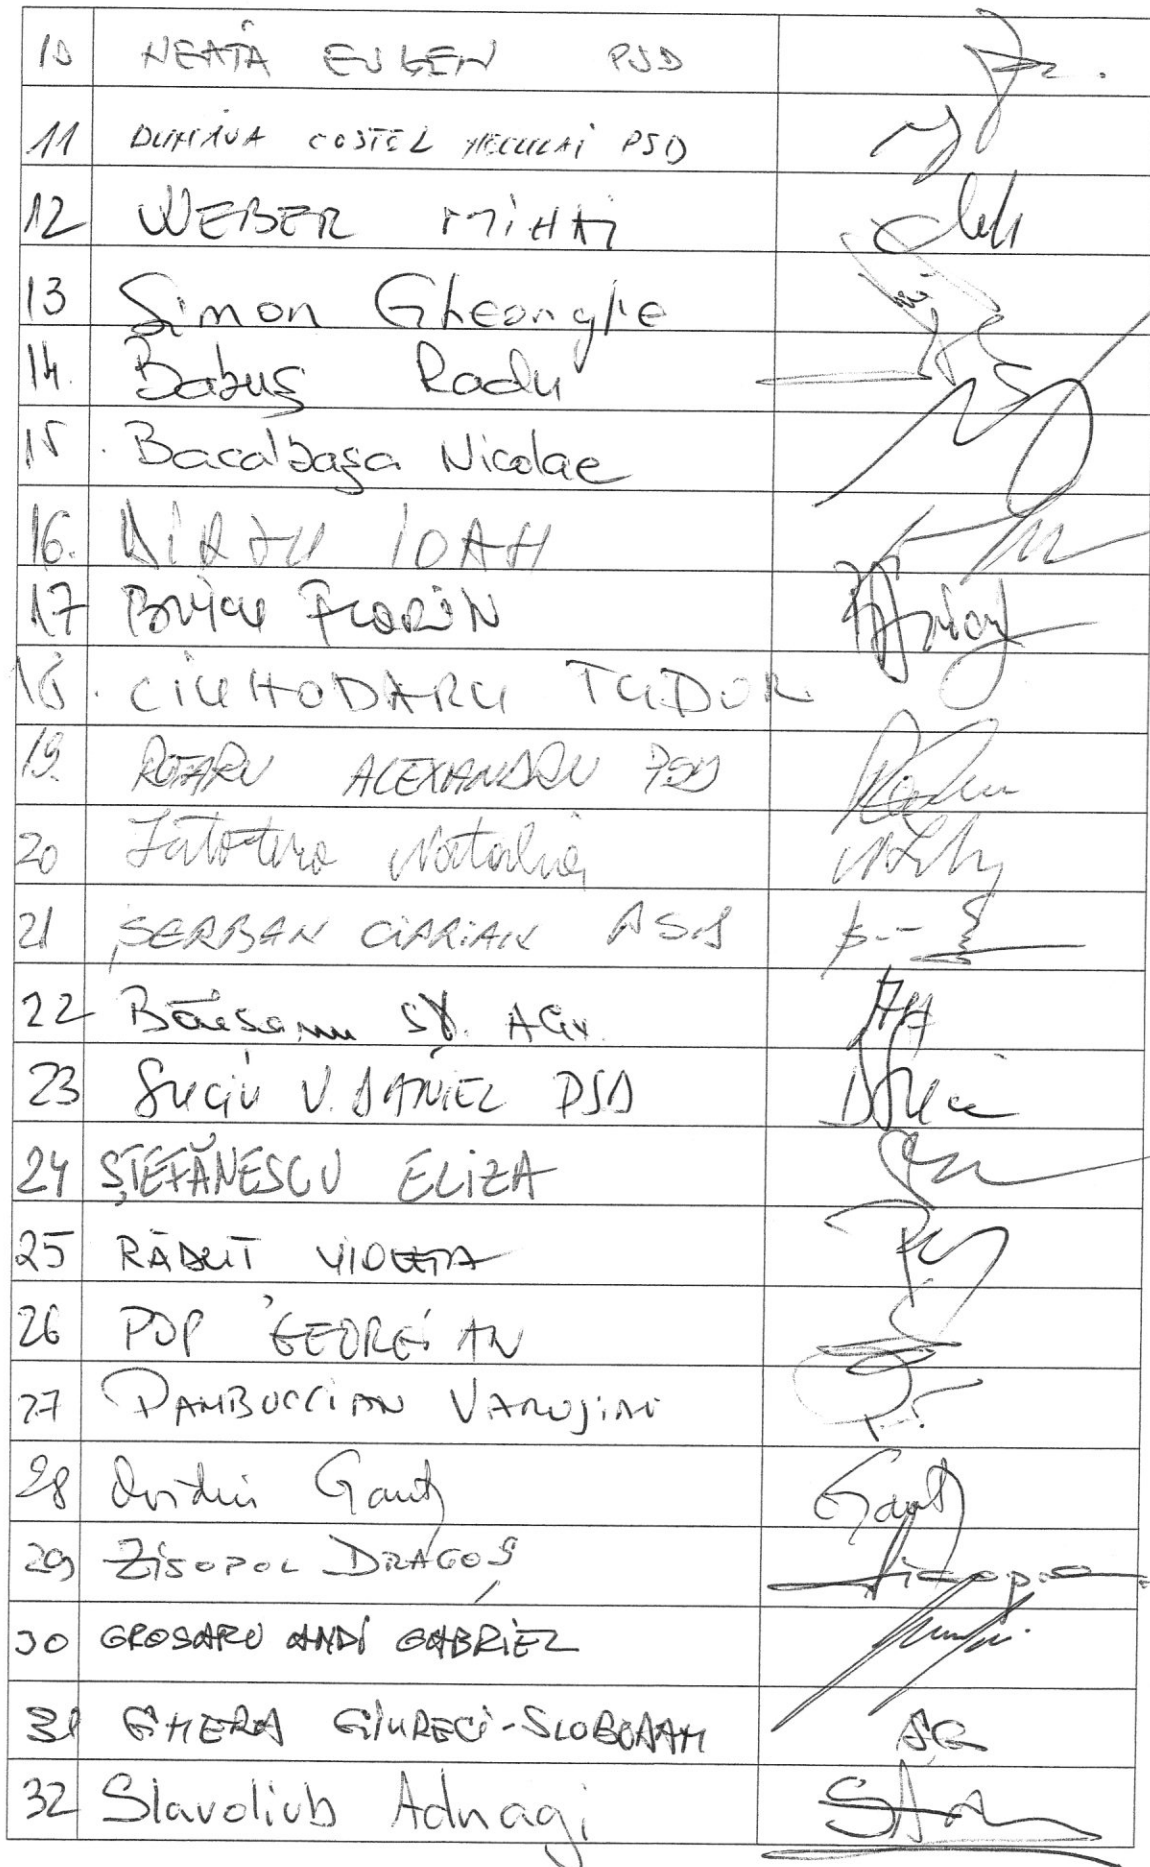 10 NEAȚĂ EUGEN PSD
11 DUNAVA COSTEL NECULAI PSD
12 WEBER MIHAI
13 Simon Gheorghe
14. Babuș Radu
15. Bacalbașa Nicolae
16. DÎRZU IOAN
17 BRICIU FLORIN
18. CIUHODARU TUDOR
19. ROTARU ALEXANDRU PSD
20 Intotero Natalia
21 ȘERBAN CIPRIAN PSD
22 Băișanu Șt. Al.
23 Suciu V. DANIEL PSD
24 ȘTEFĂNESCU ELIZA
25 RĂDUȚ VIOLETA
26 POP GEORGIAN
27 PAMBUCCIAN VARUJAN
28 Ovidiu Ganț Ganț
29 ZISOPOL DRAGOȘ
30 GROSARU ANDI GABRIEL
31 GHERA GIURECI-SLOBODAN SG
32 Slavoliub Adnagi